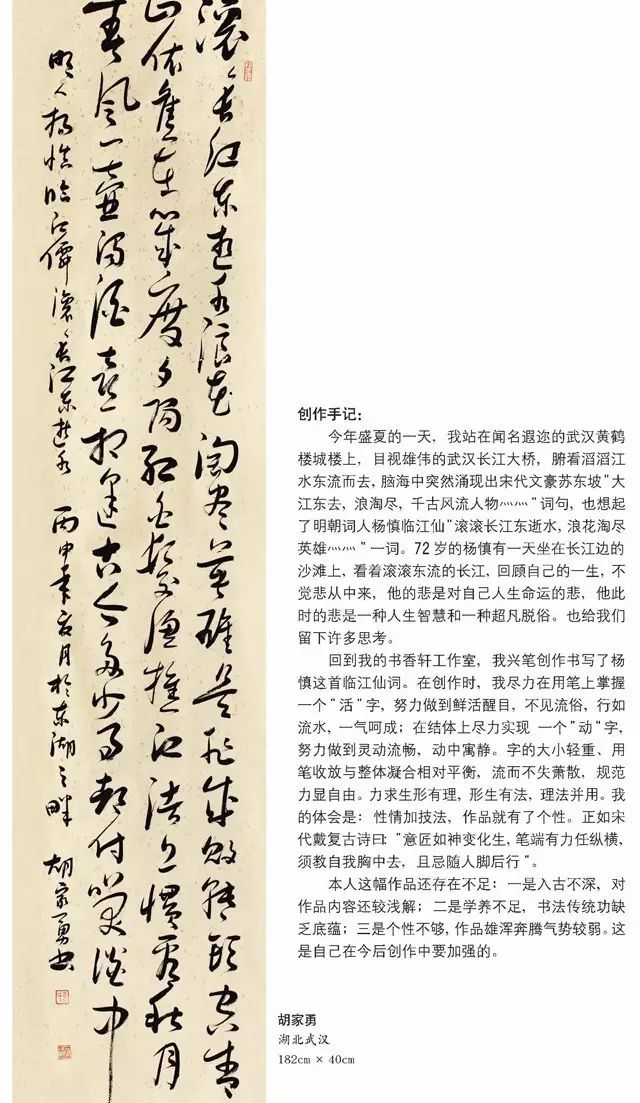 滚〻長江東逝水浪花淘盡英雄是非成敗轉頭空青
山依舊在幾度夕陽紅白髮漁樵江渚上慣看秋月
春風一壺濁酒喜相逢古今多少事都付笑談中
明人楊慎臨江僊滚〻長江東逝水 丙申年月於東湖之畔 胡家勇書
创作手记：
今年盛夏的一天，我站在闻名遐迩的武汉黄鹤
楼城楼上，目视雄伟的武汉长江大桥，腑看滔滔江
水东流而去，脑海中突然涌现出宋代文豪苏东坡"大
江东去，浪淘尽，千古风流人物灬灬"词句，也想起
了明朝词人杨慎临江仙"滚滚长江东逝水，浪花淘尽
英雄灬灬"一词。72岁的杨慎有一天坐在长江边的
沙滩上，看着滚滚东流的长江，回顾自己的一生，不
觉悲从中来，他的悲是对自己人生命运的悲，他此
时的悲是一种人生智慧和一种超凡脱俗。也给我们
留下许多思考。
回到我的书香轩工作室，我兴笔创作书写了杨
慎这首临江仙词。在创作时，我尽力在用笔上掌握
一个"活"字，努力做到鲜活醒目，不见流俗，行如
流水，一气呵成；在结体上尽力实现 一个"动"字，
努力做到灵动流畅，动中寓静。字的大小轻重、用
笔收放与整体凝合相对平衡，流而不失萧散，规范
力显自由。力求生形有理，形生有法，理法并用。我
的体会是：性情加技法，作品就有了个性。正如宋
代戴复古诗曰："意匠如神变化生，笔端有力任纵横，
须教自我胸中去，且忌随人脚后行"。
本人这幅作品还存在不足：一是入古不深，对
作品内容还较浅解；二是学养不足，书法传统功缺
乏底蕴；三是个性不够，作品雄浑奔腾气势较弱。这
是自己在今后创作中要加强的。
胡家勇
湖北武汉
182cm × 40cm